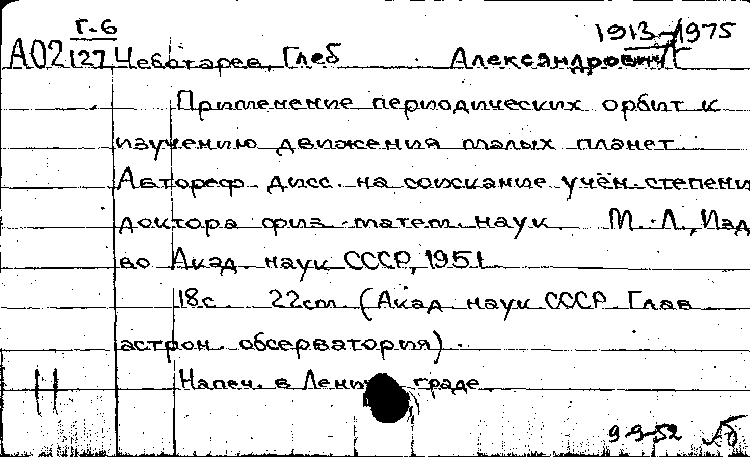 Г-6
1913-1975
А02 127 Чеботарев, Глеб Александрович
Применение периодических орбит к
изучению движения малых планет.
Автореф. дисс. на соискание учён. степени
доктора физ.-матем. наук. М.-Л., Изд
во Акад. наук СССР, 1951.
18с. 22см. (Акад наук СССР. Глав
астрон. обсерватория).
Напеч. в Ленинграде.
9-9-52